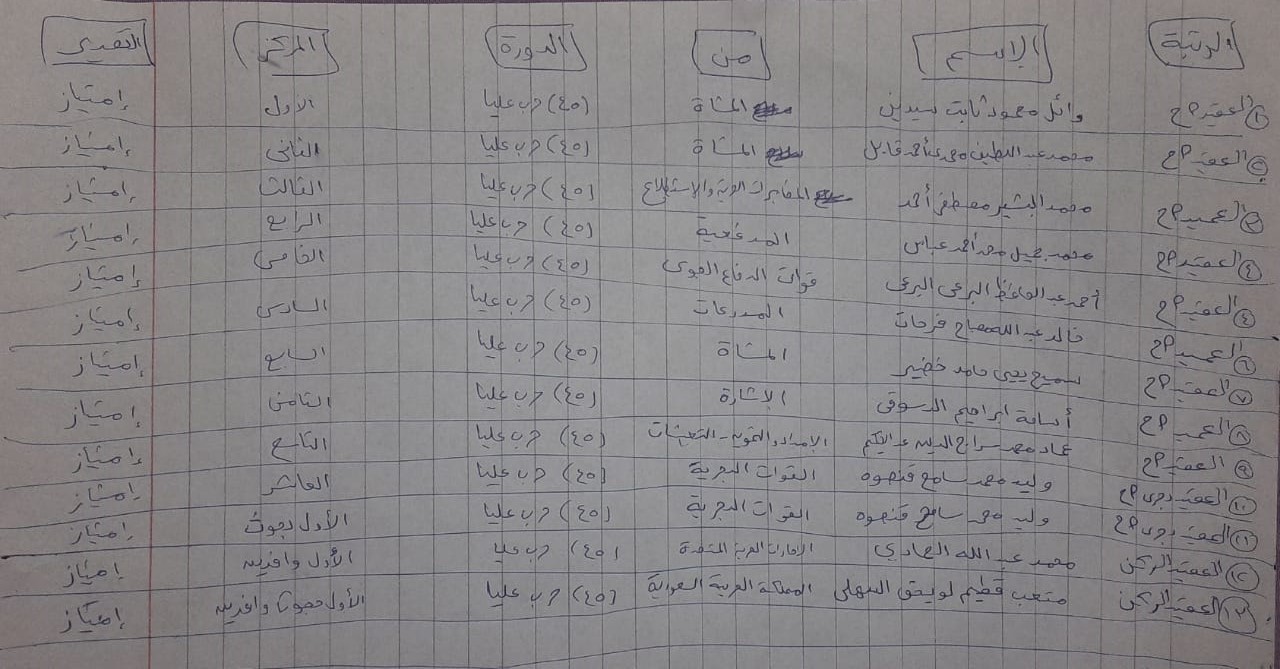 الرتبة الإسم من الدورة المركز التقدير
١ العقيد أح وائل محمود ثابت سيدين المشاة (٤٥) حرب عليا الأول إمتياز
٢ العقيد أح محمد عبد اللطيف محمد قابل المشاة (٤٥) حرب عليا الثانى إمتياز
٣ العميد أح محمد البشير مصطفى أحمد المخابرات الحربية والاستطلاع (٤٥) حرب عليا الثالث إمتياز
٤ العقيد أح محمد جميل محمد أحمد عباس المدفعية (٤٥) حرب عليا الرابع إمتياز
٤ العقيد أح أحمد عبد الحافظ البرعى البرعى قوات الدفاع الجوى (٤٥) حرب عليا الخامس إمتياز
٦ العميد أح خالد عبد الله مصباح فرحات المدرعات (٤٥) حرب عليا السادس إمتياز
٧ العقيد أح سميح يحيى حامد خضير المشاة (٤٥) حرب عليا السابع إمتياز
٨ العميد أح أسامة ابراهيم الدسوقى الإشارة (٤٥) حرب عليا الثامن إمتياز
٩ العقيد أح عماد محمد سراج الدين الامداد والتموين - التعيينات (٤٥) حرب عليا التاسع إمتياز
١٠ العقيد بحرى أح وليد محمد سامح قنصوه القوات البحرية (٤٥) حرب عليا العاشر إمتياز
١١ العقيد بحرى أح وليد محمد سامح قنصوه القوات البحرية (٤٥) حرب عليا الأول بحوث إمتياز
١٢ العقيد الركن محمد عبد الله الإمارات العربية المتحدة (٤٥) حرب عليا الأول وافدين إمتياز
١٣ العقيد الركن متعب قطيم لويحق السهلى المملكة العربية السعودية (٤٥) حرب عليا الأول وافدين إمتياز